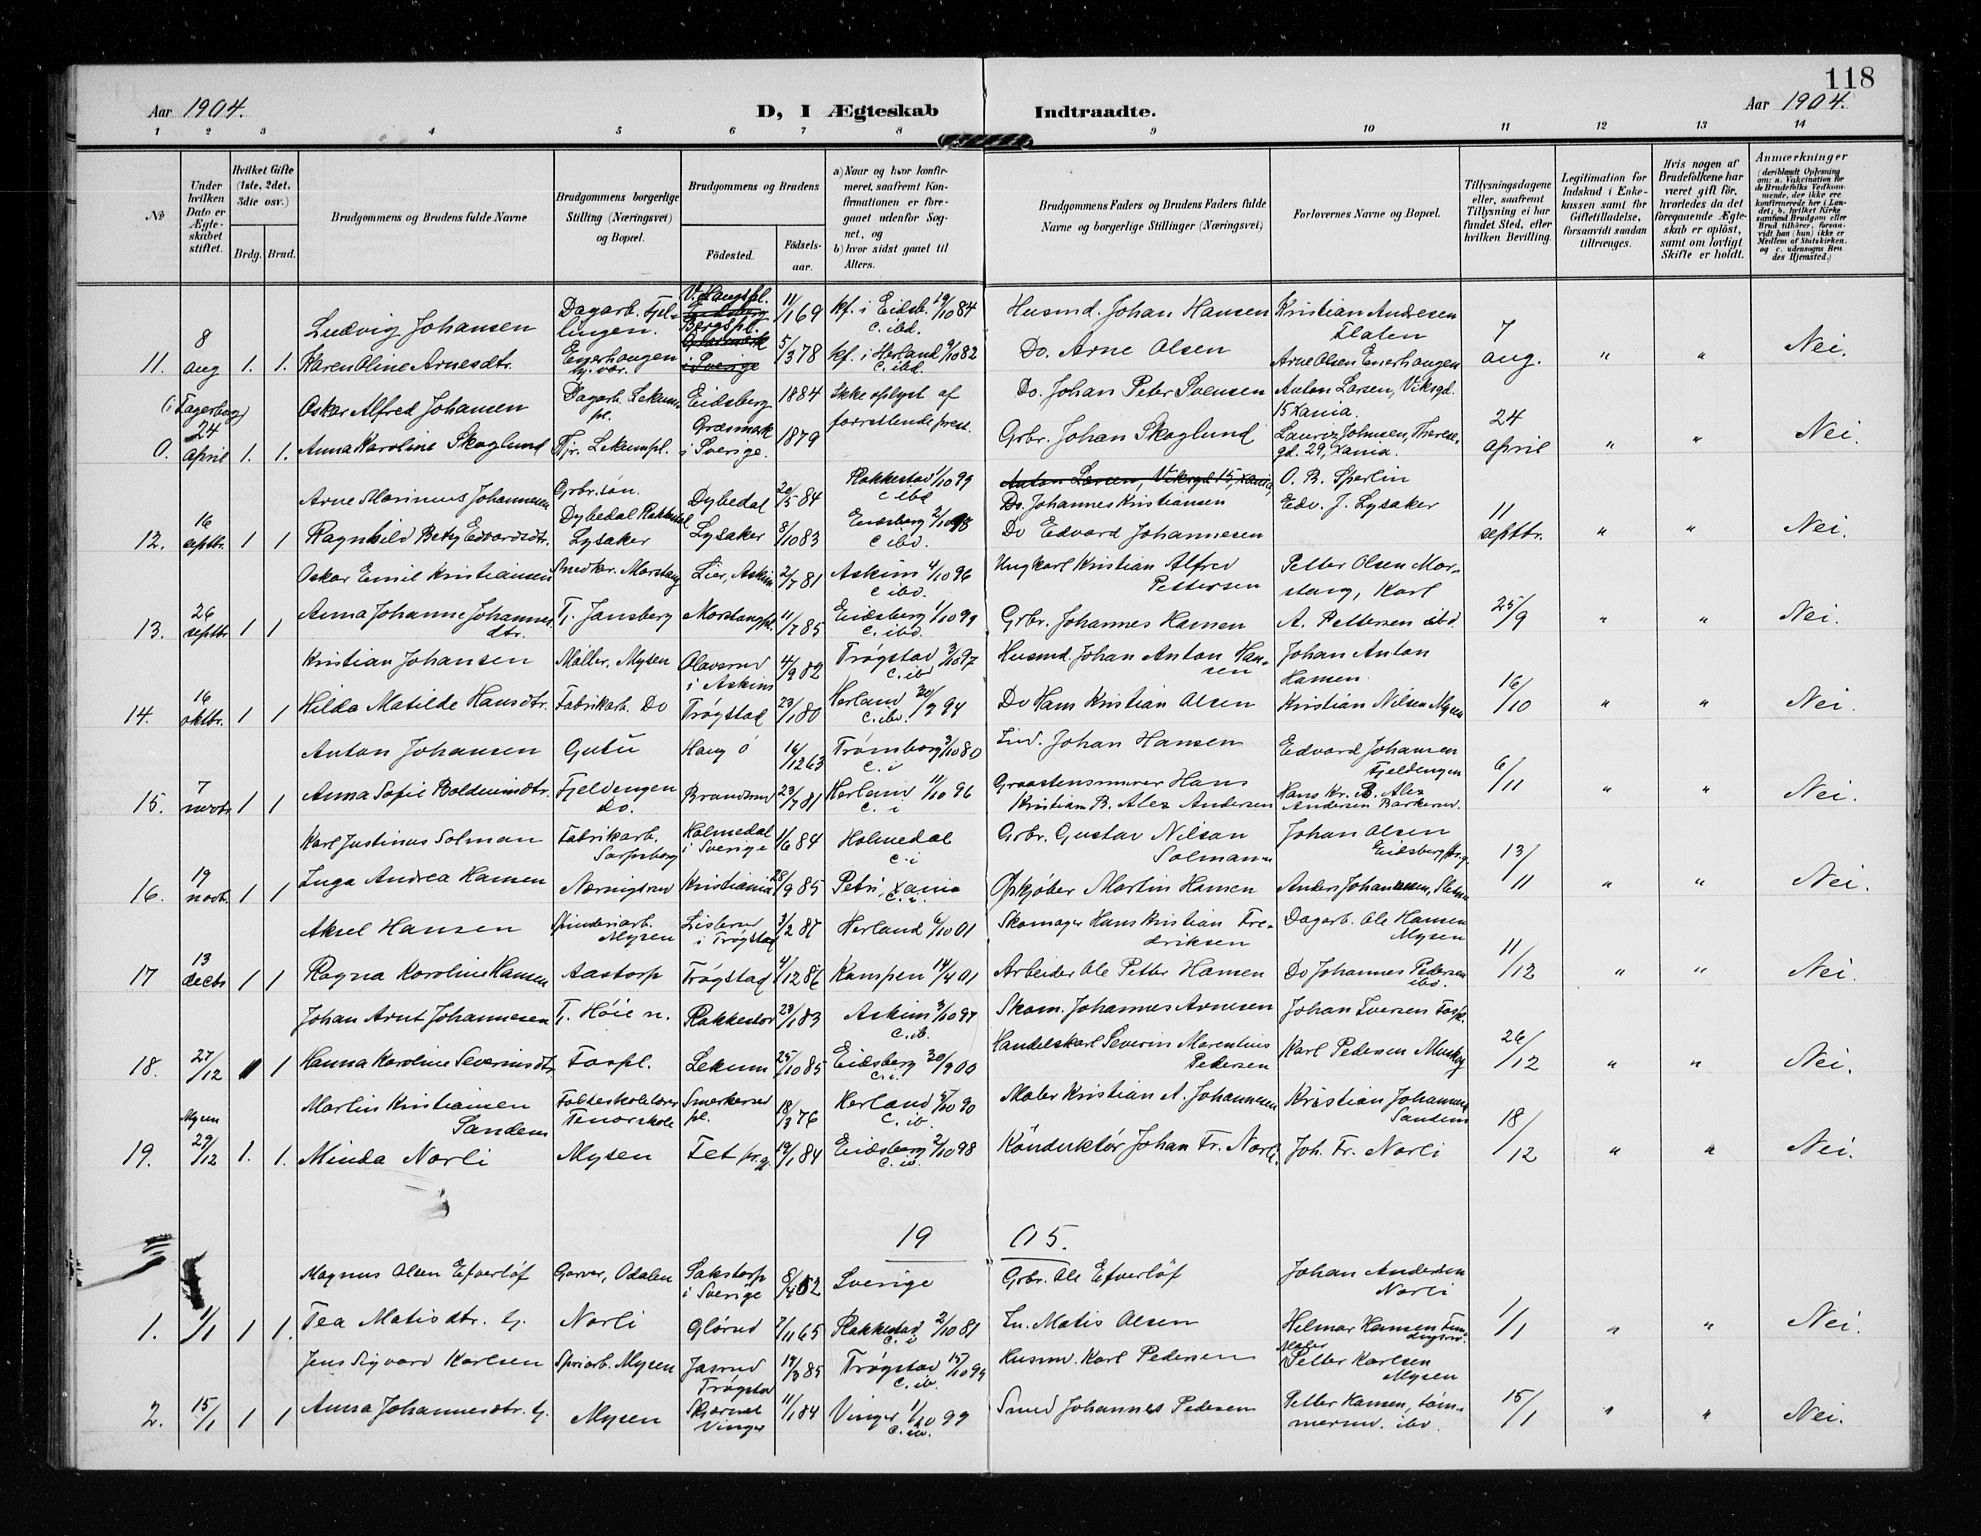 118
Aar 1904. D, I Ægteskab Indtraadte. Aar 1904.
1 2 3 4 5 6 7 8 9 10 11 12 13 14
№
Under hvilken Dato er Ægteskabet stiftet.
Hvilket Gifte (1ste, 2det, 3die osv.)
Brdg. Brud.
Brudgommens og Brudens fulde Navne
Brudgommens borgerlige Stilling (Næringsvei) og Bopæl.
Brudgommens og Brudens
Fødested. Fødselsaar.
a) Naar og hvor konfirmeret, saafremt Konfirmationen er foregaaet udenfor Sognet, og
b) hvor sidst gaaet til Alters.
Brudgommens Faders og Brudens Faders fulde Navne og borgerlige Stillinger (Næringsvei)
Forlovernes Navne og Bopæl.
Tillysningsdagene eller, saafremt Tillysning ei har fundet Sted, efter hvilken Bevilling.
Legitimation for Indskud i Enkekassen samt for Giftetilladelse, forsaavidt saadan tiltrænges.
Hvis nogen af Brudefolkene har været gift før, hvorledes da det foregaaende Ægteskab er opløst, samt om lovligt Skifte er holdt.
Anmærkninger (deriblandt Oplysning om: a. Vakcination for de Brudefolks Vedkommende, der ikke ere konfirmerede her i Landet; b. hvilket Kirkesamfund Brudgom eller Brud tilhører, forsaavidt han (hun) ikke er Medlem af Statskirken, og c. udensogns Brudes Hjemsted.)
Ludvig Johansen Dagarb. Fjellingen. V. Haugspl. 11/1 69 kf. i Eidsb. 19/10 84 c. ibd. Husmd. Johan Hansen Kristian Andresen Flaten
11. 8 aug 1. 1. Karen Oline Arnesdtr. Enerhaugen Bergspl. 5/3 78 kf. i Herland 9/10 82 c. ibd. Do. Arne Olsen Arne Olsen Enerhaugen 7 aug. " " Nei.
Oskar Alfred Johansen Dagarb. Lekumspl. Eidsberg 1884 Ikke oplyst af forrettende prest. Do. Johan Peter Svensen Anton Larsen, Viksgd. 15 Xania.
0. 24 april 1. 1. Anna Karoline Skoglund Tj. Lekumpl. Græsmark i Sverige. 1879 Grbr. Johan Skoglund Lauriz Johnsen, Theresegd. 29, Xania. 24 april " " Nei.
Arne Marinius Johannesen Grbr.søn. Dybedal Rakkestad Dybedal 20/5 84 Rakkestad 1/10 99 c ibd Anton Larsen, Viksgd 15, Xania, Do. Johannes Kristiansen O. B. Sperlin
12. 16 septbr. 1 1 Ragnhild Betsy Edvardsdtr. Lysaker Lysaker 8/10 83 Eidsberg 2/10 98 c ibd. Do Edvard Johannesen Edv. J. Lysaker 11 septbr. " " Nei.
Oskar Emil Kristiansen Smedkr. Morstang Lier, Askim 2/7 81 Askim 4/10 96 c ibd. Ungkarl Kristian Alfred Pettersen Petter Olsen Morstang, Karl
13. 26 septbr 1 1 Anna Johanne Johannesdtr. Tj. Jansberg Morstangpl. 11/7 85 Eidsberg 1/10 99 c. ibd. Grbr. Johannes Hansen A. Pettersen ibd. 25/9 " " Nei.
Kristian Johansen Møller. Mysen Olavsrud i Askim 4/9 82 Trøgstad 3/10 97 c. ibd Husmd. Johan Anton Hansen Johan Anton Hansen
14. 16 oktbr. 1 1 Hilda Matilde Hansdtr. Fabrikarb. Do Trøgstad 23/1 80 Herland 30/9 94 c. ibd. Do Hans Kristian Olsen Kristian Nilsen Mysen 16/10 " " Nei.
Anton Johansen Gutu Haug ø 16/12 63 Trømborg 3/10 80 c. i Johan Hansen Edvard Johansen Fjeldengen
15. 7 novbr. 1 1 Anna Sofie Boldevinsdtr. Fjeldengen Do. Brandsrud 23/7 81 Herland 11/10 96 c. i Graastensmurer Hans Kristian B. Alex Andersen Hans Kr. B. Alex Andersen Barkerud. 6/11 " " Nei.
Karl Justinus Solman Fabrikarb. Sarpsborg Holmedal i Sverige 1/6 84 Holmedal c. i Grbr. Gustav Nilson Solmann Johan Olsen Eidsberg prg.
16. 19 novbr. 1 1 Inga Andrea Hansen Nærnigsrud Kristiania 28/9 85 Petri, Xania c. i. Opkjøber Martin Hansen Anders Johannesen, 13/11 " " Nei.
Aksel Hansen Spinderiarb. Mysen Lislerud i Trøgstad 3/2 81 Herland 6/10 01 Skomager Hans Kristian Fredriksen Dagarb. Ole Hansen Mysen
17 13 decbr 1 1 Ragna Karoline Hansen Aastorp Trøgstad 4/12 86 Kampen 14/4 01 Arbeider Ole Petter Hansen Do Johannes Pedersen ibd. 11/12 " " Nei.
Johan Arnt Johannesen Tj. Høie n. Rakkestad 23/1 83 Askim 3/10 97 c. ib. Skom. Johannes Arnesen Johan Iversen Fospl.
18. 27/12 1 1 Hanna Karoline Severinsdtr Fospl. Lekum 25/10 85 Eidsberg 30/9 00 c. i. Handelskarl Severin Marentius Pedersen Karl Pedersen 26/12 " " Nei.
Martin Kristiansen Sandem Folkeskolelærer Tenorskole Smerkerud pl. 18/3 76 Herland 5/10 90 c. ib. Maler Kristian A. Johannesen Kristian Johannesen Sandem
19. Mysen 29/12 1. 1. Minda Norli Mysen Fet prg. 19/1 84 Eidsberg 2/10 98 c. ib. Konduktør Johan Fr. Norli. Joh. Fr. Norli 18/12 " " Nei.
19 05.
Magnus Olsen Efverløf Garver, Odalen i Sverige 8/4 52 Sverige Grbr. Ole Efverløf Johan Andersen Norli
1. 1/1 1 1. Tea Matisdtr. tj. Norli Glørud 7/11 65 Rakkestad 2/10 81 c. i Matis Olsen Helmar Hansen 1/1 " " Nei.
Jens Sigvard Karlsen Spriarb. Mysen Jasrud Trøgstad 19/3 85 Trøgstad 15/10 99 c. ib. Husmd. Karl Pedersen Maler Petter Karlsen Mysen
2. 15/1 1 1 Anna Johannesdtr. tj. Mysen Vinger 11/1 84 Vinger 1/10 99 c. ib. Smed Johannes Pedersen Petter Hansen, tømmermd. ibd. 15/1 " " Nei.